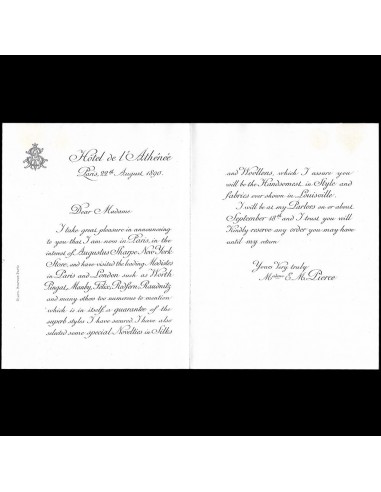 Hôtel de l'Athénée
Paris, 22th August 1890.
Dear Madame
I take great pleasure in announcing
to you that I am now in Paris, in the
interest of Augustus Sharpe New-York
Store, and have visited the leading Modistes
in Paris and London such as Worth
Pingat, Mauby, Felix, Redfern, Raudnitz
and many others too numerous to mention
which is in itself a guarantee of the
superb styles I have secured I have also
selected some special Novelties in Silks
and Woollens, which I assure you
will be the Handsomest in Style and
fabrics ever shown in Louisville.
I will be at my Parlors on or about
September 18th and I trust you will
Kindly reserve any order you may have
until my return
Your Very truly
Madame E. M. Pierce